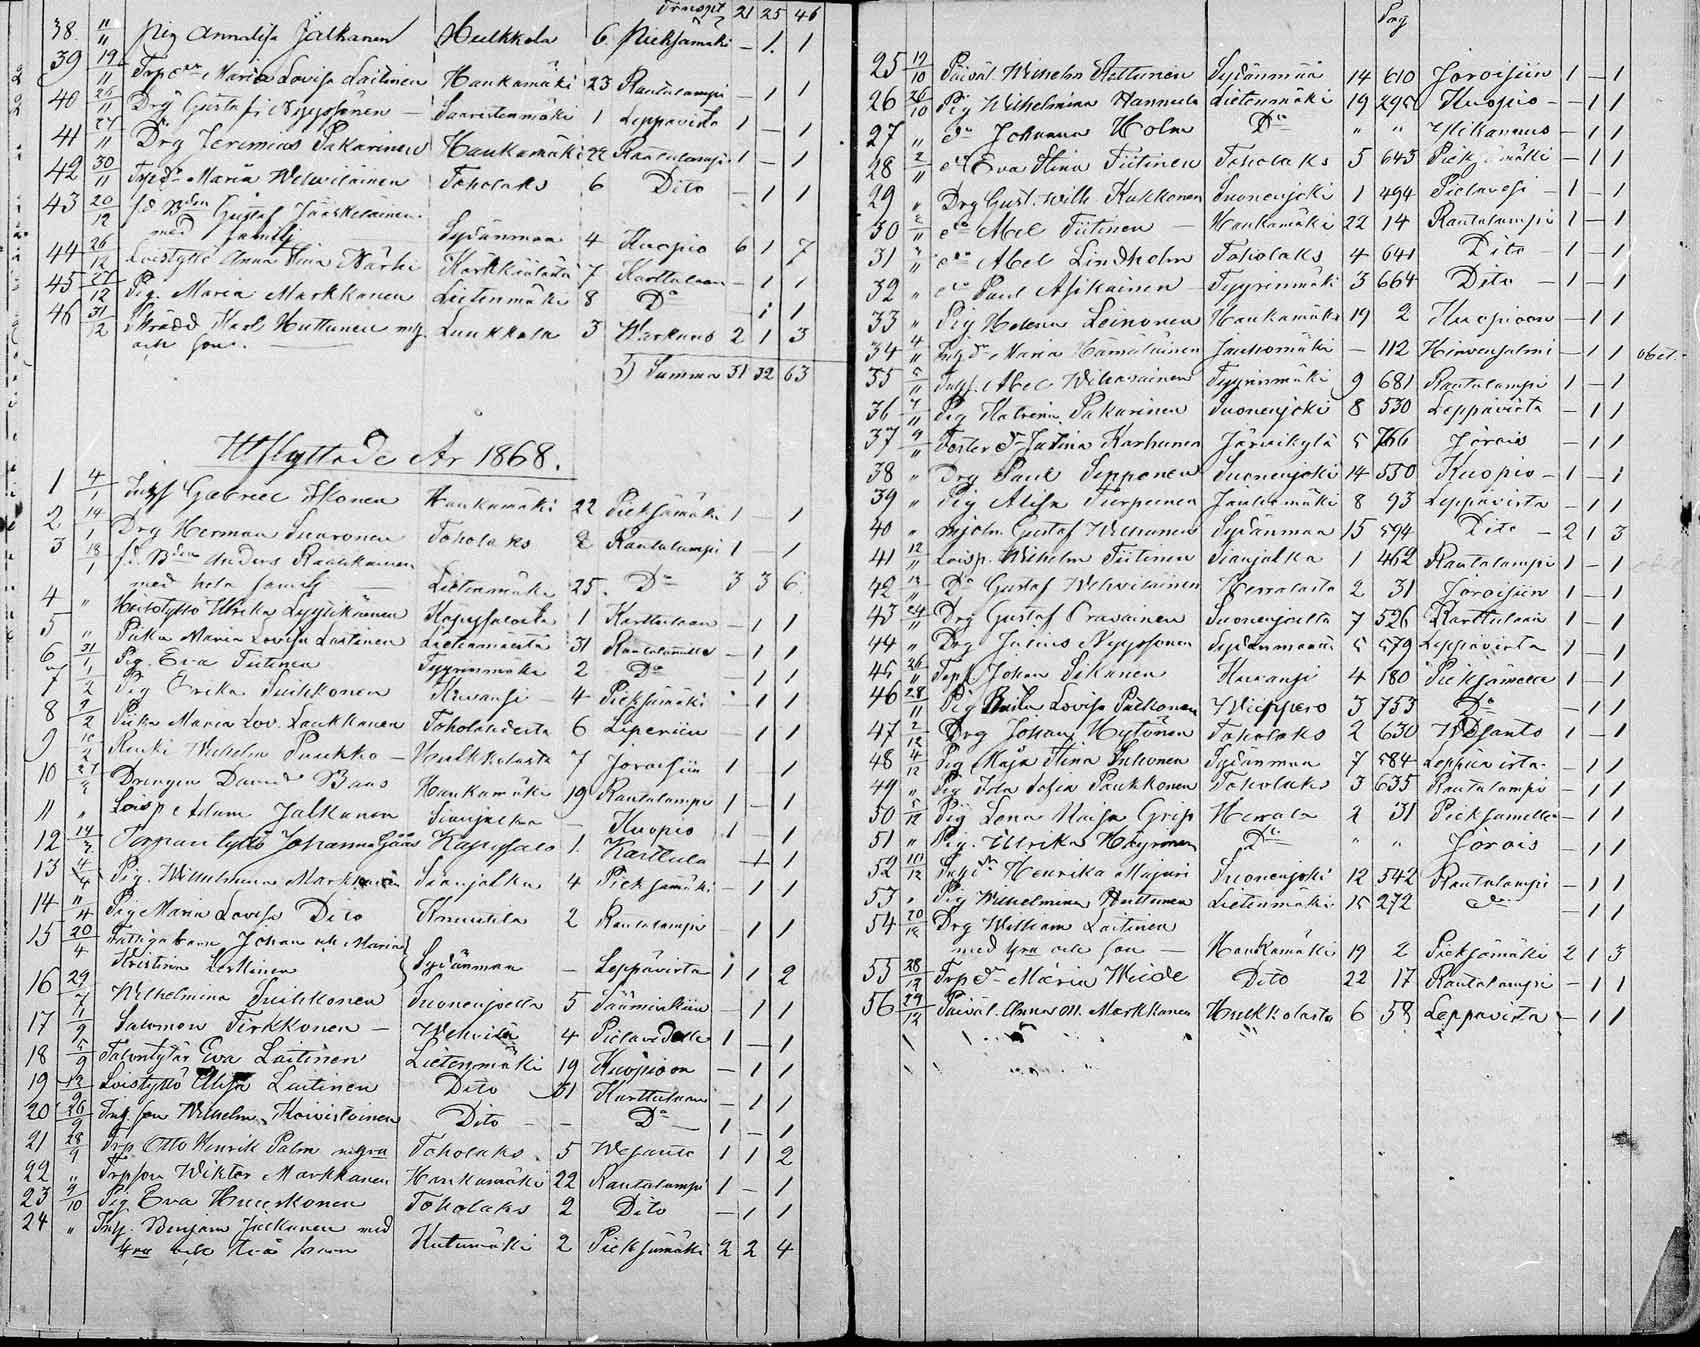 Transpt 21 25 46
38. " Pig Annalisa Jalkanen Hulkkola 6. Pieksämäki – 1. 1
39 19/11 Trp dr Maria Lovisa Laitinen Haukamäki 23 Rautalampi – 1 1
40 26/11 Drg Gustaf Nyyssönen – Saaristenmäki 1 Leppävirta 1 – 1
41 27/11 Drg Jeremias Pakarinen Haukamäki 22 Rautalampi 1 – 1
42 30/11 Trp dr Maria Wehviläinen Toholaks 6 Dito – 1 1
43 20/12 f.d. Bden Gustaf Jääskeläinen
med familj Sydänmaa 4 Kuopio 6 1 7
44 26/12 Loistyttö Anna Stina Närhi Kärkkäälästä 7 Karttulaan – 1 1
45 27/12 Pig. Maria Markkanen Lietenmäki 8 Do – 1 1
46 31/12 Skrädd Karl Huttunen m hg Luukkola 3 Warkaus 2 1 3
och son.
Summa 31 32 63
Utflyttade År 1868.
1 4/1 Inhys Gabriel Ikonen Haukamäki 22 Pieksämäki 1 – 1
2 14/1 Drg Herman Suuronen Toholaks 2 Rautalampi 1 – 1
3 18/1 f.d. Bden Anders Raatikainen
med hela familj Lietenmäki 25. Do 3 3 6
4 " Heilotyttö Ulrika Lyytikäinen Kopysalosta 1 Karttulaan – 1 1
5 " Piika Maria Lovisa Lastunen Lietenmäestä 31 Rautalammille – 1 1
6 31/1 Pig. Eva Tiitinen Tyyrinmäki 2 Do – 1 1
7 /2 Pig Erika Suihkonen Kuvansi – 4 Pieksämäki – 1 1
8 9/2 Piika Maria Lov. Laukkanen Toholahdesta 6 Liperiin – 1 1
9 10/2 Renki Wilhelm Puukko – Hulkkolasta 7 Joroisiin 1 – 1
10 27/2 Drengen David Baas Haukamäki 19 Rautalampi 1 – 1
11 " Loisp Adam Jalkanen Sianjalka – Kuopio 1 – 1
12 14/3 Torparityttö Johanna Gåås Kopysalo 1. Karttula – 1 1
13 4/4 Pig. Wilhelmina Markkanen Sianjalka 4 Pieksämäki – 1 1
14 "/4 Pig Maria Lovisa Dito Kruunula 2 Rautalampi – 1 1
15 20/4 Fattiga barn Johan och Maria
Kristina Leskinen Sydänmaa – Leppävirta 1 1 2
16 29/ Wilhelmina Suihkonen Suonenjoella 5 Säämingiin – 1 1
17 /9 Salomon Tirkkonen – Wehvilä 4 Pielavedelle 1 – 1
18 5/9 Talontytär Eva Laitinen Lietenmäki 19 Kuopioon – 1 1
19 12/9 Loistyttö Elisa Laitinen Dito 31 Karttulaan – 1 1
20 26/9 Inh. son Wilhelm Koivistoinen Dito – Do 1 – 1
21 28/9 Trp Otto Henrik Palm m hustru Toholaks 5 Wesanto 1 1 2
22 " Trp son Wiktor Markkanen Haukamäki 22 Rautalampi 1 – 1
23 9/10 Pig. Eva Huuskonen Toholaks 2 Dito – 1 1
24 " Inh. Benjam Jalkanen med
hru och två barn Kutumäki 2 Pieksämäki 2 2 4
Pag
25 19/10 Päiväl. Wilhelm Pettunen Sydänmaa 14 610 Joroisiin 1 – 1
26 26/10 Pig Wilhelmina Hannula Lietenmäki 19 295 Kuopio – 1 1
27 " do Johanna Holm Do " " Ylikannus – 1 1
28 2/11 do Eva Stina Tiitinen Toholaks 5 645 Pieksämäki – 1 1
29 " Drg Gust. Wilh Kukkonen Suonenjoki 1 494 Pielavesi 1 – 1
30 "/11 do Abel Tiitinen – Haukamäki 22 14 Rautalampi 1 – 1
31 "/11 do Abel Lindholm Toholaks 4 641 Dito 1 – 1
32 " do Paul Asikainen – Tyyrinmäki 3 664 Dito – 1 – 1
33 " Pig Helena Leinonen Haukamäki 19 2 Kuopioon – 1 1
34 4/11 Inh dr Maria Hämäläinen Jauhomäki – 112 Hirvensalmi – 1 1
35 5/11 Inhys. Abel Wihavainen Tyyrinmäki 9 681 Rautalampi 1 – 1
36 7/11 Pig Katrina Pakarinen Suonenjoki 8 530 Leppävirta – 1 1
37 9/11 Foster dr Justina Karhunen Järvikylä 5 766 Jorois – 1 1
38 " Drg Paul Sepponen Suonenjoki 14 550 Kuopio – 1 – 1
39 " Pig Alisa Turpeinen Jauhomäki 8 93 Leppävirta – 1 1
40 " mjöln. Gustaf Wilhunen Sydänmaa 15 594 Dito – 2 1 3
41 12/11 Loisp. Wilhelm Tiitinen Sianjalka 1 462 Rautalampi 1 – 1
42 13/11 Do Gustaf Wehviläinen Herralasta 2 31 Joroisiin 1 – 1
43 24/11 Drg Gustaf Oravainen Suonenjoelta 7 526 Karttulaan 1 – 1
44 " Drg Julius Nyyssönen Sydänmaa 5 579 Leppävirta 1 – 1
45 26/11 Torp Johan Sikanen Kuvansi 4 180 Pieksämelle 1 – 1
46 28/11 Pig Lovisa Pulkonen Wiippero 3 753 Do – 1 1
47 2/12 Drg Johan Hytönen Toholaks 2 630 Wesanto 1 – 1
48 4/12 Pig Maja Stina Inkonen Sydänmaa 7 584 Leppävirta – 1 1
49 " Pig Ida Sofia Paukkonen Toholaks 3 635 Rautalampi – 1 1
50 5/12 Pig Lena Kaisa Grip Herrala 2 31 Pieksamelle – 1 1
51 " Pig. Ulrika Hyyrynen Do " " Jorois – 1 1
52 10/12 Inh dr Henrika Majuri Suonenjoki 12 542 Rautalampi – 1 1
53 " Pig Wilhelmina Huttunen Lietenmäki 15 272 do – 1 1
54 20/12 Drg William Laitinen
med hru och son – Haukamäki 19 2 Pieksämäki 2 1 3
55 28/12 Trp dr Maria Weide Dito 22 17 Rautalampi – 1 1
56 29/12 Päiväl. Anna M. Markkanen Hulkkolasta 6 58 Leppävirta – 1 1